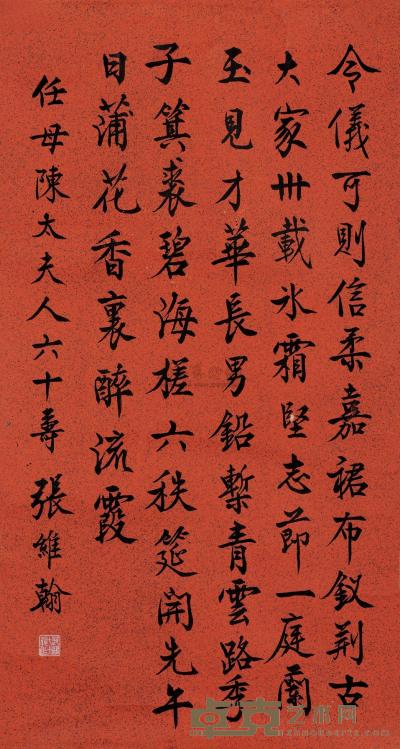 令儀可則信柔嘉裙布釵荊古
大家卅載冰霜堅志節一庭蘭
玉見才華長男鉛槧青雲路季
子箕裘碧海槎六秩筵開先午
日蒲花香裏醉流霞
任母陳太夫人六十壽 張維翰
卓克艺术网